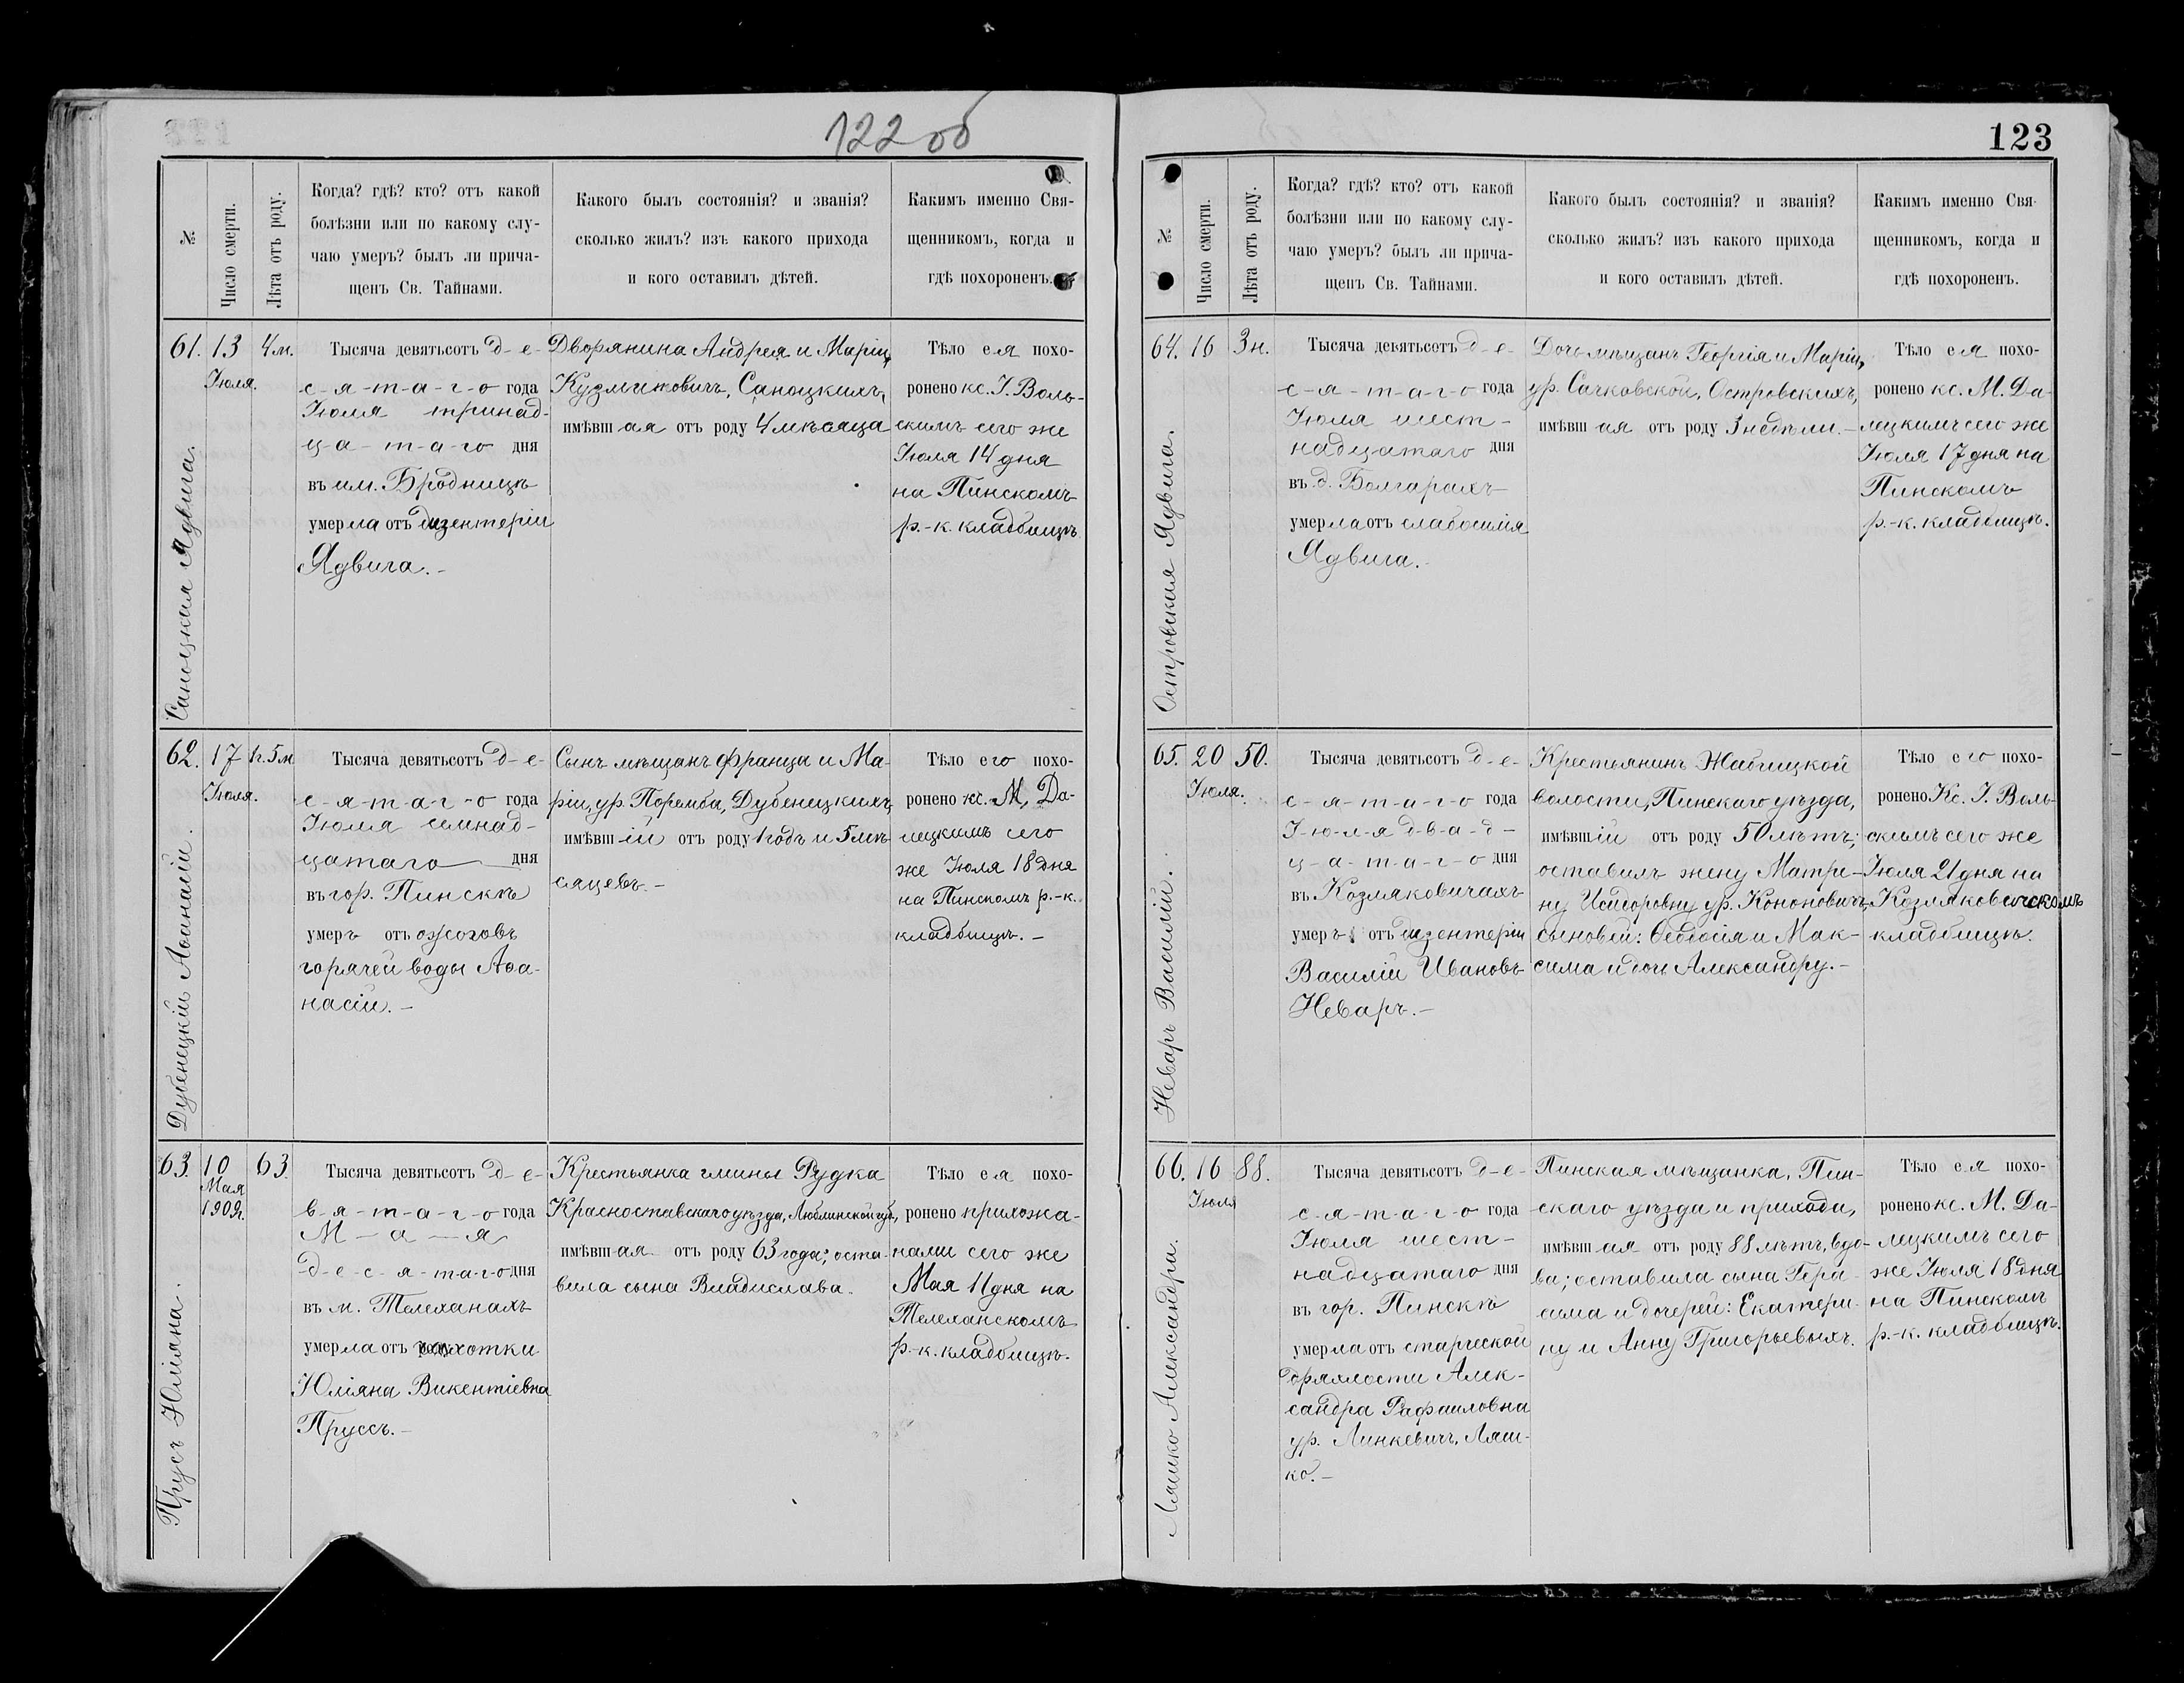 122 об
№
Число смерти.
Лѣта отъ роду.
Когда? гдѣ? кто? отъ какой
болѣзни или по какому слу-
чаю умеръ? былъ ли прича-
щенъ Св. Тайнами.
Какого былъ состоянія? и званія?
сколько жилъ? изъ какого прихода
и кого оставилъ дѣтей.
Какимъ именно Свя-
щенникомъ, когда и
гдѣ похороненъ.
61.
Саноцкая Ядвига.
13
Іюля.
4 м.
Тысяча девятьсотъ д-е-
с-я-т-а-г-о года
Іюля тринад-
ц-а-т-а-го дня
въ им. Бродницѣ
умерла отъ дизентеріи
Ядвига.-
Дворянина Андрея и Маріи,
Кузмичковичъ, Саноцкихъ,
имѣвшая отъ роду 4 мѣсяца
Тѣло ея похо-
ронено кс. І. Воль-
скимъ сего же
Іюля 14 дня
на Пинскомъ
р.-к. кладбищѣ
62.
Дубенецкій Аѳанасій.
17
Іюля.
1г. 5м
Тысяча девятьсотъ д-е-
с-я-т-а-г-о года
Іюля семнад-
цатаго дня
въ гор. Пинскѣ
умеръ отъ ожоговъ
горячей воды Аѳа-
насій.-
Сынъ мѣщанъ Франца и Ма-
ріи, ур. Поремба, Дубенецкихъ,
имѣвшій отъ роду 1 годъ и 5 мѣ-
сяцевъ.-
Тѣло его похо-
ронено кс. М. Да-
лецкимъ сего
же Іюля 18 дня
на Пинскомъ р.-к.
кладбищѣ.-
63.
Прусъ Юліяна.
10
Мая
1909г.
63.
Тысяча девятьсотъ д-е-
в-я-т-а-г-о года
М-а-я
д-е-с-я-т-а-г-о дня
въ м. Телеханахъ
умерла отъ чахотки
Юліяна Викентіевна
Пруссъ.-
Крестьянка гмины Рудка
Красноставскаго уѣзда, Люблинской губ.,
имѣвшая отъ роду 63 года; оста-
вила сына Владислава.
Тѣло ея похо-
ронено прихожа-
нами сего же
Мая 11 дня на
Телеханскомъ
р.-к. кладбищѣ.
123
№
Число смерти.
Лѣта отъ роду.
Когда? гдѣ? кто? отъ какой
болѣзни или по какому слу-
чаю умеръ? былъ ли прича-
щенъ Св. Тайнами.
Какого былъ состоянія? и званія?
сколько жилъ? изъ какого прихода
и кого оставилъ дѣтей.
Какимъ именно Свя-
щенникомъ, когда и
гдѣ похороненъ.
64.
Островская Ядвига.
16
3 н.
Тысяча девятьсотъ д-е-
с-я-т-а-г-о года
Іюля шест-
надцатаго дня
въ д. Болгарахъ
умерла отъ слабосилія
Ядвига.-
Дочь мѣщанъ Георгія и Маріи,
ур. Сачковской, Островскихъ,
имѣвшая отъ роду 3 недѣли.-
Тѣло ея похо-
ронено кс. М. Да-
лецкимъ сего же
Іюля 17 дня на
Пинскомъ
р.-к. кладбищѣ.
65.
Неваръ Василій.
20
Іюля.
50.
Тысяча девятьсотъ д-е-
с-я-т-а-г-о года
І-ю-л-я д-в-а-д-
ц-а-т-а-г-о дня
въ Козляковичахъ
умеръ отъ дизентеріи
Василій Ивановъ
Неваръ.-
Крестьянинъ Жабчицкой
волости, Пинскаго уѣзда,
имѣвшій отъ роду 50 лѣтъ;
оставилъ жену Матре-
ну Исидоровну ур. Кононовичъ,
сыновей: Ѳеодосія и Мак-
сима и дочь Александру.-
Тѣло его похо-
ронено Кс. І. Воль-
скимъ сего же
Іюля 21 дня на
Козляковичскомъ
кладбищѣ.
66.
Ляшко Александра.
16
Іюля
88.
Тысяча девятьсотъ д-е-
с-я-т-а-г-о года
Іюля шест-
надцатаго дня
въ гор. Пинскѣ
умерла отъ старческой
дряхлости Алек-
сандра Рафаиловна
ур. Линкевичъ, Ляш-
ко.-
Пинская мѣщанка, Пин-
скаго уѣзда и прихода,
имѣвшая отъ роду 88 лѣтъ, вдо-
ва; оставила сына Гера-
сима и дочерей: Екатери-
ну и Анну Григорьевыхъ.
Тѣло ея похо-
ронено кс. М. Да-
лецкимъ сего
же Іюля 18 дня
на Пинскомъ
р.-к. кладбищѣ.